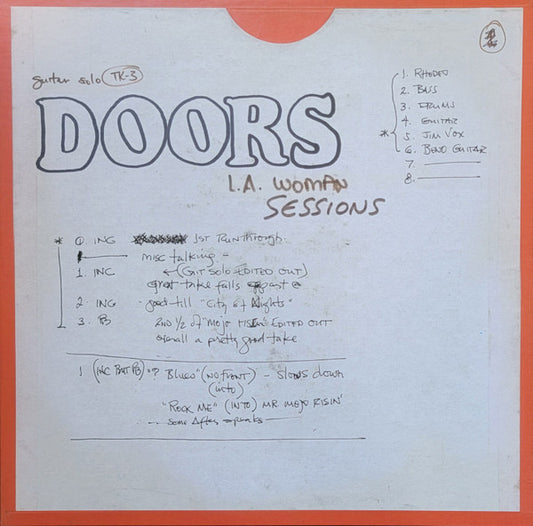 guitar solo TK-3
DOORS
L.A. WOMAN
SESSIONS
1. RHODES
2. BASS
3. DRUMS
4. GUITAR
* 5. JIM VOX
6. BEND GUITAR
7.
8.
* 0. INC 1ST RUNTHROUGH
misc talking -
1. INC ← (GIT SOLO EDITED OUT)
great take falls apart @
2. INC - good till "City of Nights"
3. PB 2ND 1/2 of "Mojo EDITED OUT
overall a pretty good take
1 (INC BUT PB) "? BLUES" (NO FRONT) - SLOWS DOWN
(into)
"ROCK ME" (INTO) MR MOJO RISIN'
- some After